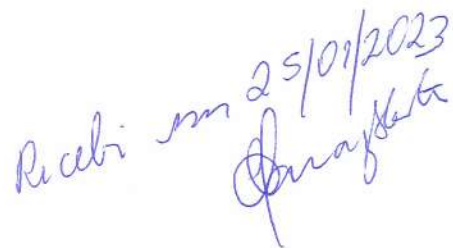 Recebi em 25/01/2023